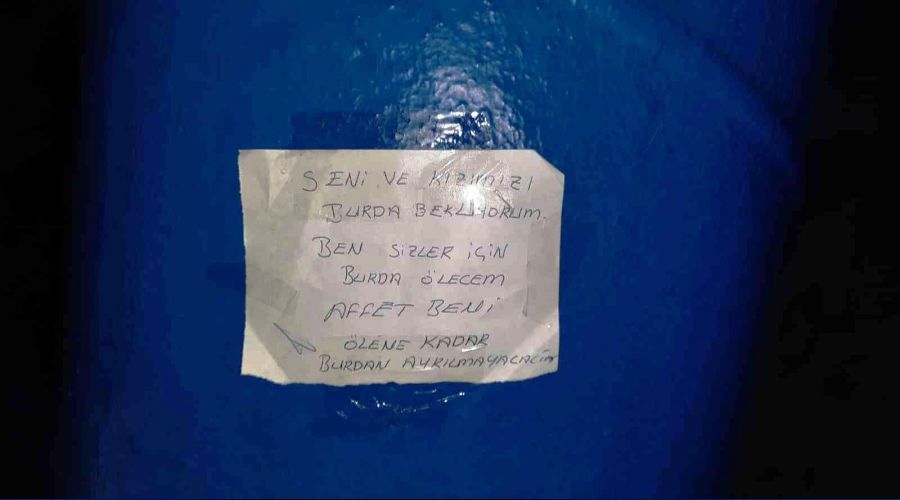 SENİ VE KIZIMIZI
BURDA BEKLİYORUM.
BEN SİZLER İÇİN
BURDA ÖLECEM
AFFET BENİ
ÖLENE KADAR
BURDAN AYRILMAYACAĞIM